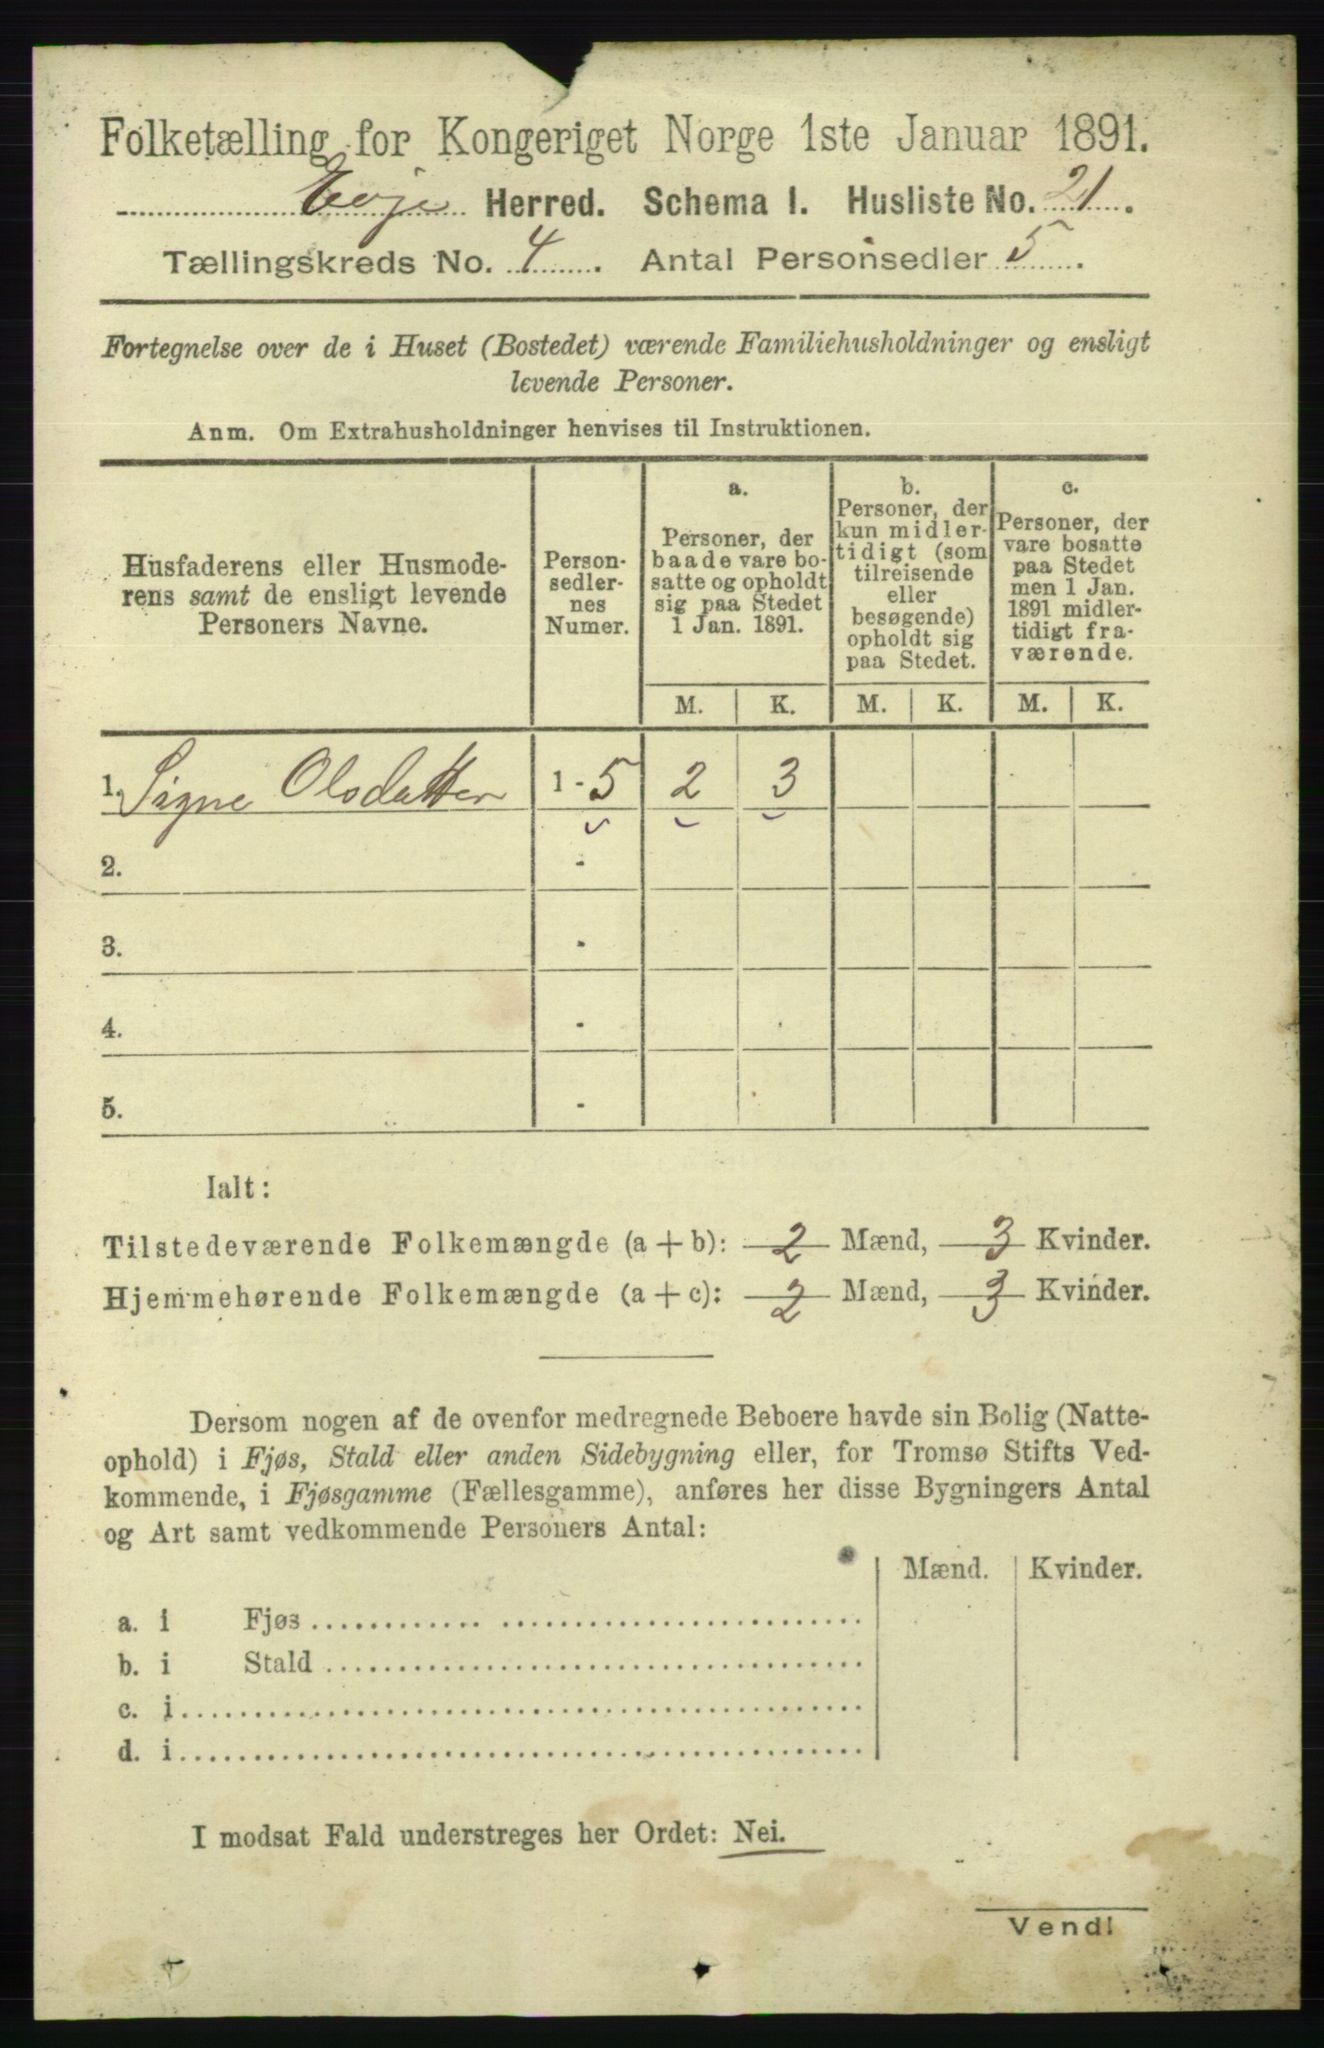 Folketælling for Kongeriget Norge 1ste Januar 1891.
Evje Herred. Schema I. Husliste No. 21.
Tællingskreds No. 4. Antal Personsedler 5.
Fortegnelse over de i Huset (Bostedet) værende Familiehusholdninger og ensligt
levende Personer.
Anm. Om Extrahusholdninger henvises til Instruktionen.
Husfaderens eller Husmode-
rens samt de ensligt levende
Personers Navne.
Person-
sedler-
nes
Numer.
a.
Personer, der
baade vare bo-
satte og opholdt
sig paa Stedet
1 Jan. 1891.
b.
Personer, der
kun midler-
tidigt (som
tilreisende
eller
besøgende)
opholdt sig
paa Stedet.
c.
Personer, der
vare bosatte
paa Stedet
men 1 Jan.
1891 midler-
tidigt fra-
værende.
M. K. M. K. M. K.
1. Signe Olsdatter 1 - 5 2 3
2. -
3. -
4. -
5. -
Ialt:
Tilstedeværende Folkemængde (a + b): 2 Mænd, 3 Kvinder.
Hjemmehørende Folkemængde (a + c): 2 Mænd, 3 Kvinder.
Dersom nogen af de ovenfor medregnede Beboere havde sin Bolig (Natte-
ophold) i Fjøs, Stald eller anden Sidebygning eller, for Tromsø Stifts Ved-
kommende, i Fjøsgamme (Fællesgamme), anføres her disse Bygningers Antal
og Art samt vedkommende Personers Antal:
Mænd. Kvinder.
a. i Fjøs
b. i Stald
c. i
d. i
I modsat Fald understreges her Ordet: Nei.
Vend!